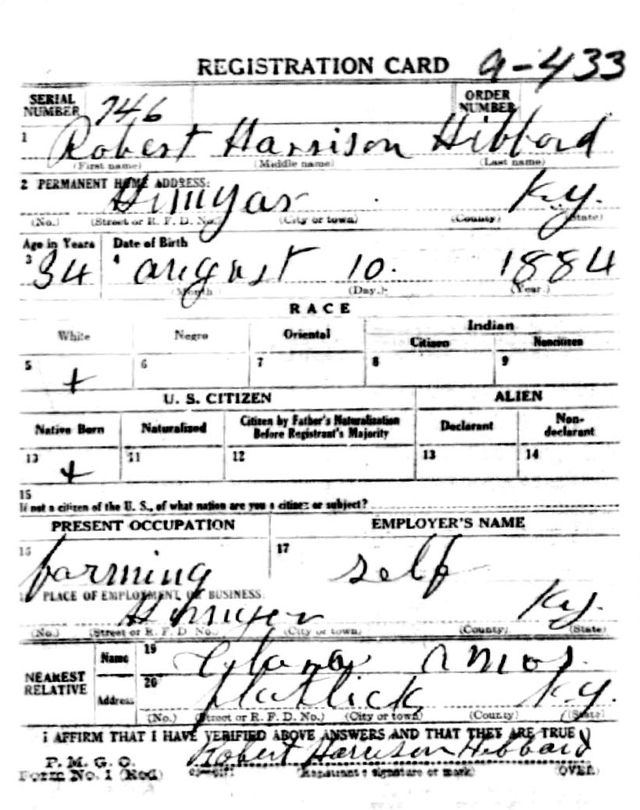 REGISTRATION CARD 9-433
SERIAL NUMBER 746 ORDER NUMBER
1 Robert Harrison Hibbard
(First name) (Middle name) (Last name)
2 PERMANENT HOME ADDRESS:
Himyar Ky.
(No.) (Street or R. F. D. No.) (City or town) (County) (State)
Age in Years Date of Birth
3 34 4 august 10. 1884
(Month) (Day.) (Year.)
RACE
White Negro Oriental Indian
Citizen Noncitizen
5 + 6 7 8 9
U. S. CITIZEN ALIEN
Native Born Naturalized Citizen by Father's Naturalization Before Registrant's Majority Declarant Non-declarant
10 + 11 12 13 14
15
If not a citizen of the U. S., of what nation are you a citizen or subject?
PRESENT OCCUPATION EMPLOYER'S NAME
16 farming 17 self
PLACE OF EMPLOYMENT OR BUSINESS:
Himyer Ky.
(No.) (Street or R. F. D. No.) (City or town) (County) (State)
NEAREST RELATIVE Name 19 Amos.
Address 20 Flat Lick Ky.
(No.) (Street or R. F. D. No.) (City or town) (County) (State)
I AFFIRM THAT I HAVE VERIFIED ABOVE ANSWERS AND THAT THEY ARE TRUE
P. M. G. O.
Form No. 1 (Red) Robert Harrison Hibbard
(Registrant's signature or mark) (OVER)